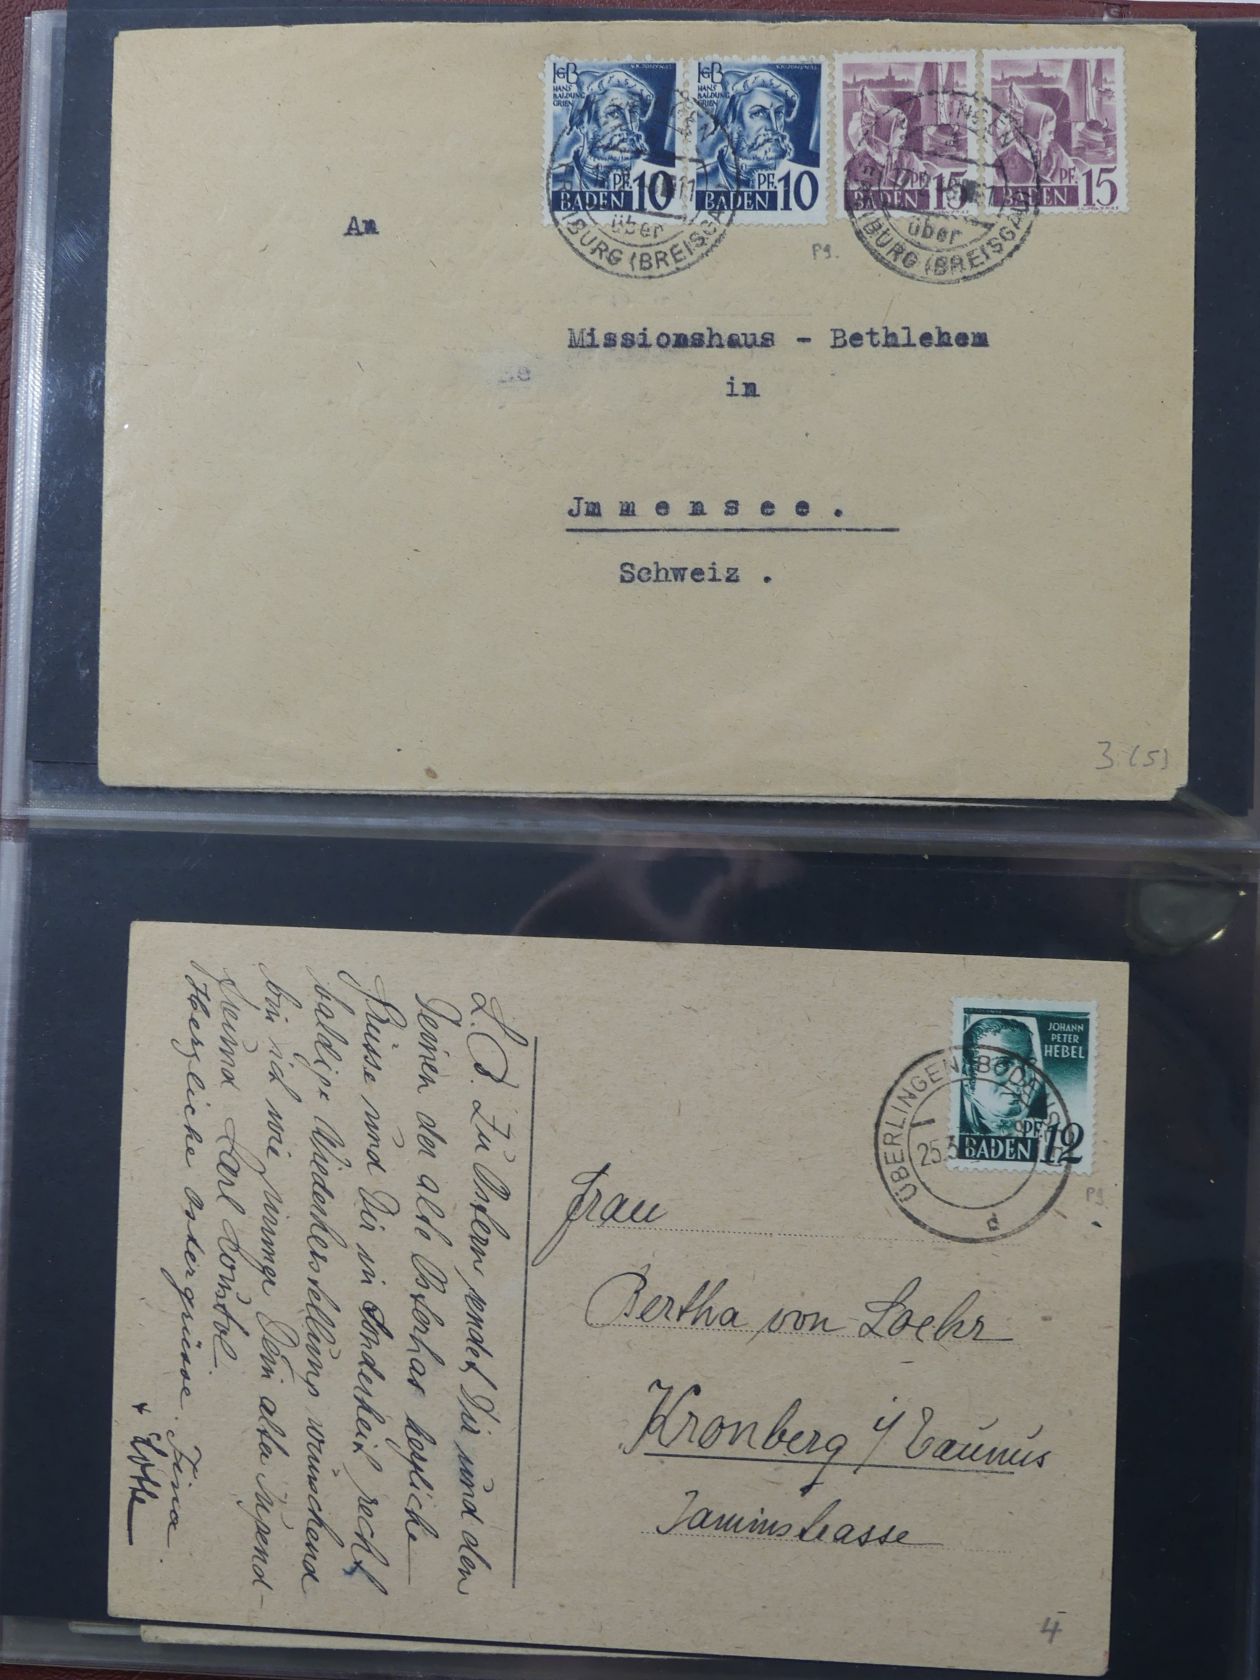 HGB
HANS
BALDUNG
GRIEN
PF. 10
BADEN
HGB
HANS
BALDUNG
GRIEN
PF. 10
BADEN
PF. 15
BADEN
PF. 15
BADEN
über
FREIBURG (BREISGAU)
über
FREIBURG (BREISGAU)
Pg.
An
Missionshaus - Bethlehem
in
Jmmensee.
Schweiz.
3 (5)
JOHANN
PETER
HEBEL
PF 12
BADEN
ÜBERLINGEN (BODENSEE)
25.3
a
Pg.
Frau
Bertha von Loehr
Kronberg i/Taunus
4
L. B. Zu Ostern sendet Dir und den
Deinen der alte Osterhas herzliche
Grüsse und Dir in Sonderheit recht
baldige Wiederherstellung wünschend
bin ich wie immer Dein alter Jugend-
freund Karl
Herzliche Ostergrüsse. Fina.
+ Lotte